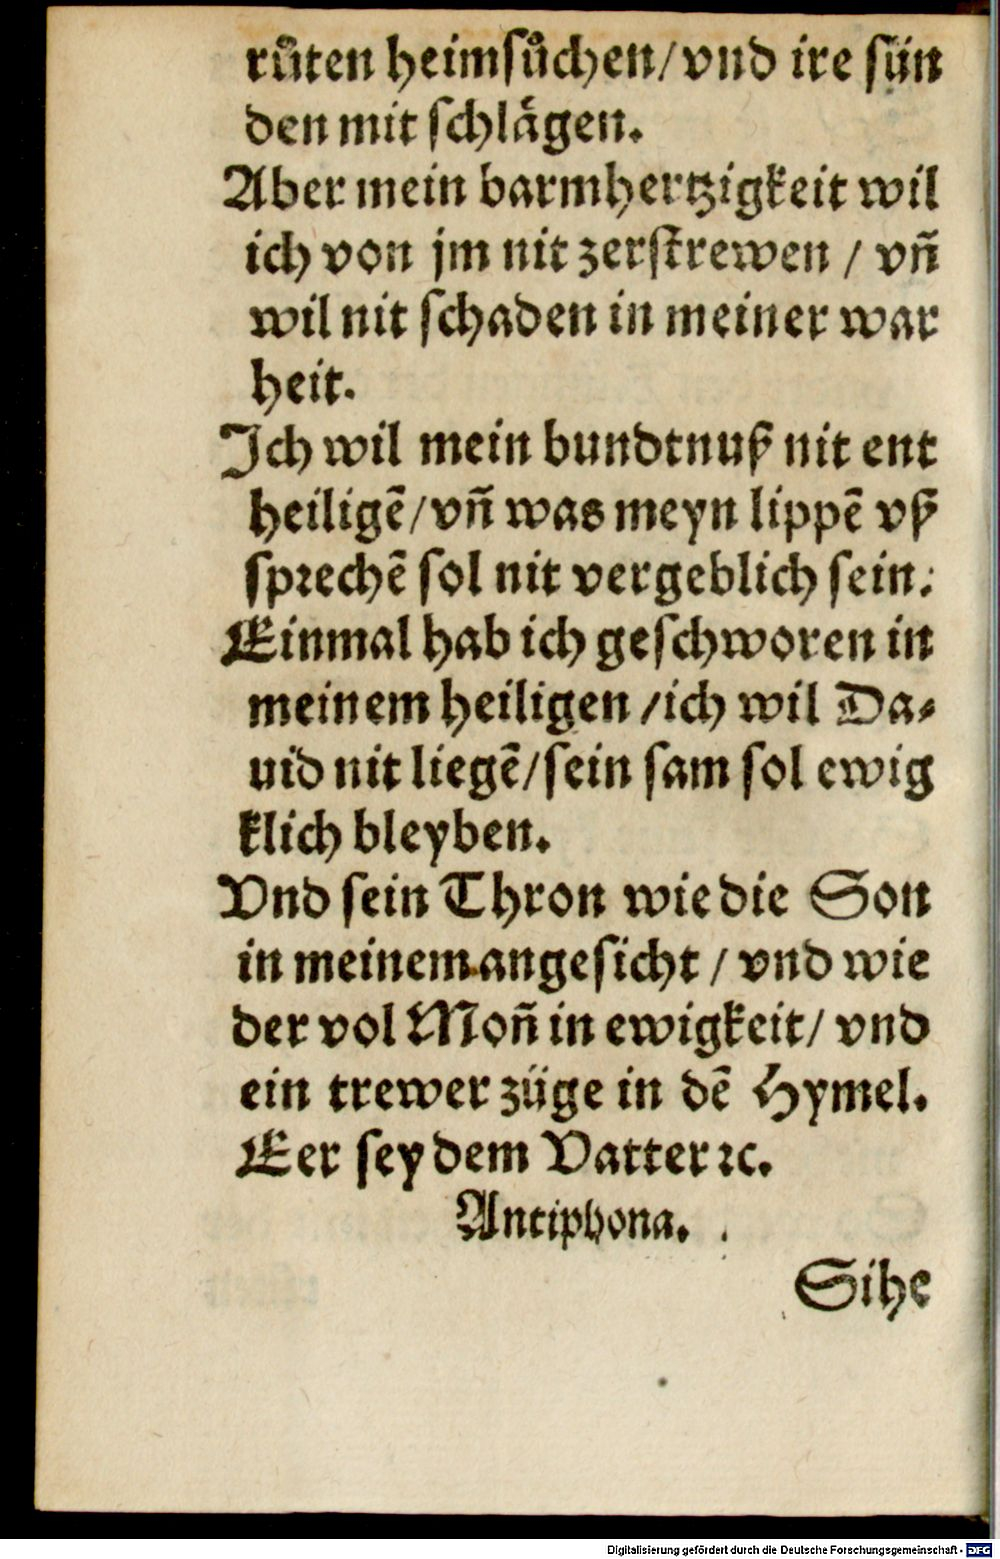 růten heimsůchen/vnd ire sün
den mit schlägen.
Aber mein barmhertzigkeit wil
ich von jm nit zerstrewen / vn̄
wil nit schaden in meiner war
heit.
Ich wil mein bundtnuß nit ent
heiligē/vn̄ was meyn lippē vß
sprechē sol nit vergeblich sein.
Einmal hab ich geschworen in
meinem heiligen /ich wil Da⸗
uid nit liegē/sein sam sol ewig
klich bleyben.
Vnd sein Thron wie die Son
in meinem angesicht / vnd wie
der vol Mon̄ in ewigkeit/ vnd
ein trewer züge in dē Hymel.
Eer sey dem Vatter ꝛc.
Antiphona.
Sihe
Digitalisierung gefördert durch die Deutsche Forschungsgemeinschaft - DFG